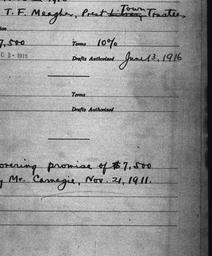 T. F. Meagher, Prest Library Town Trustees
7,500
Terms 10%
1915
Drafts Authorized June 13, 1916
Terms
Drafts Authorized
overing promise of $7,500
y Mr. Carnegie, Nov. 21, 1911.